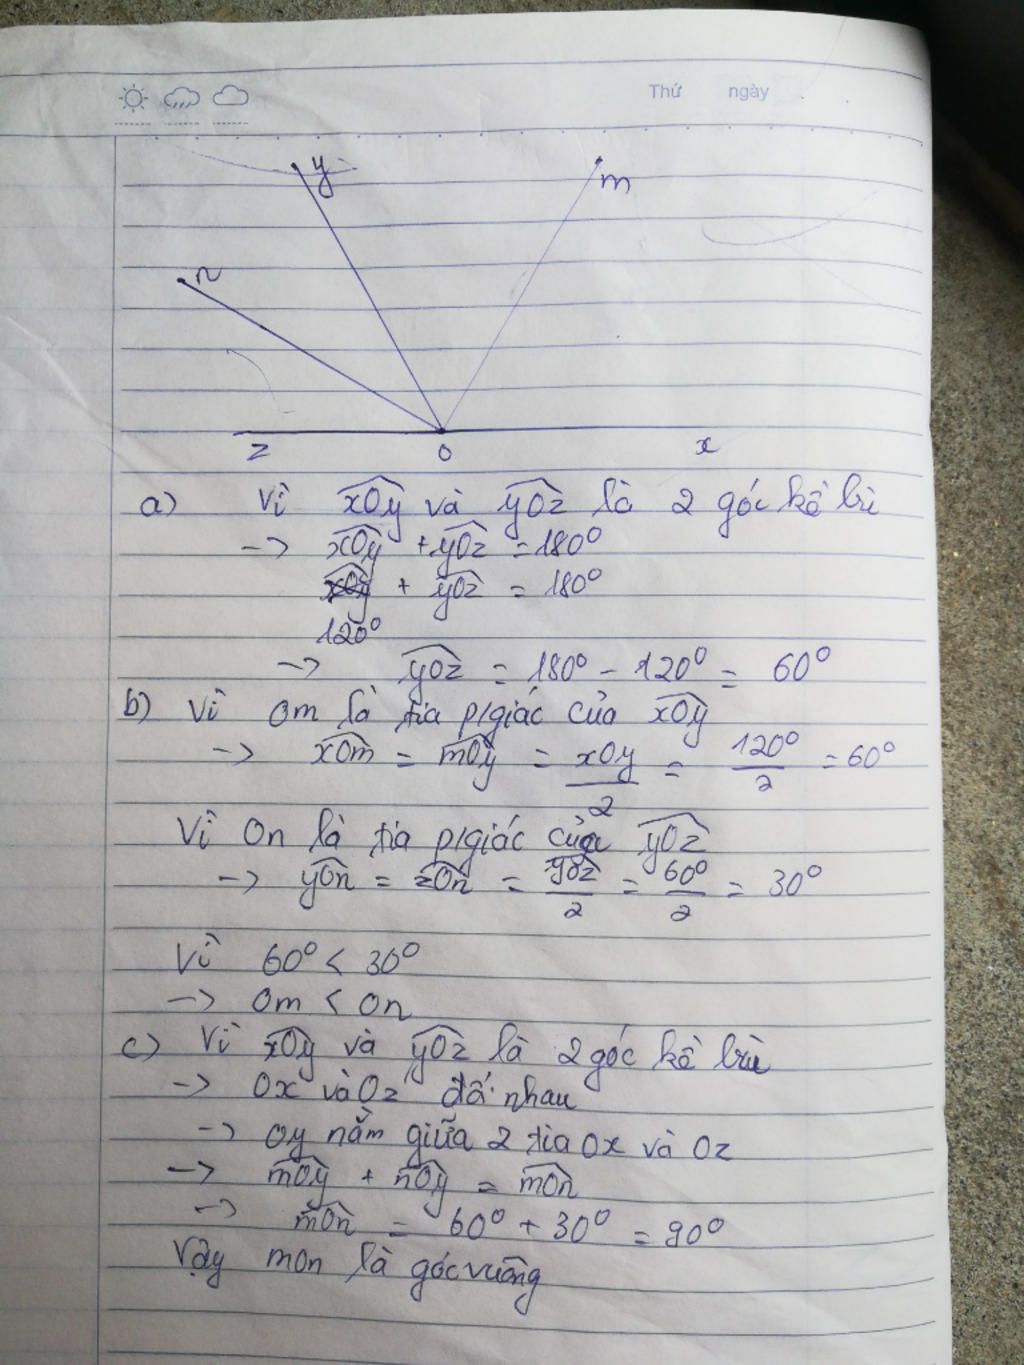 Thứ ngày
y
m
n
z O x
a) Vì xOy và yOz là 2 góc kề bù
-> xOy + yOz = 180°
xOy + yOz = 180°
120°
-> yOz = 180° - 120° = 60°
b) Vì Om là tia p/giác của xOy
-> xOm = mOy = xOy/2 = 120°/2 = 60°
Vì On là tia p/giác của yOz
-> yOn = zOn = yOz/2 = 60°/2 = 30°
Vì 60° < 30°
-> Om < On
c) Vì xOy và yOz là 2 góc kề bù
-> Ox và Oz đối nhau
-> Oy nằm giữa 2 tia Ox và Oz
-> mOy + nOy = mOn
-> mOn = 60° + 30° = 90°
Vậy mOn là góc vuông